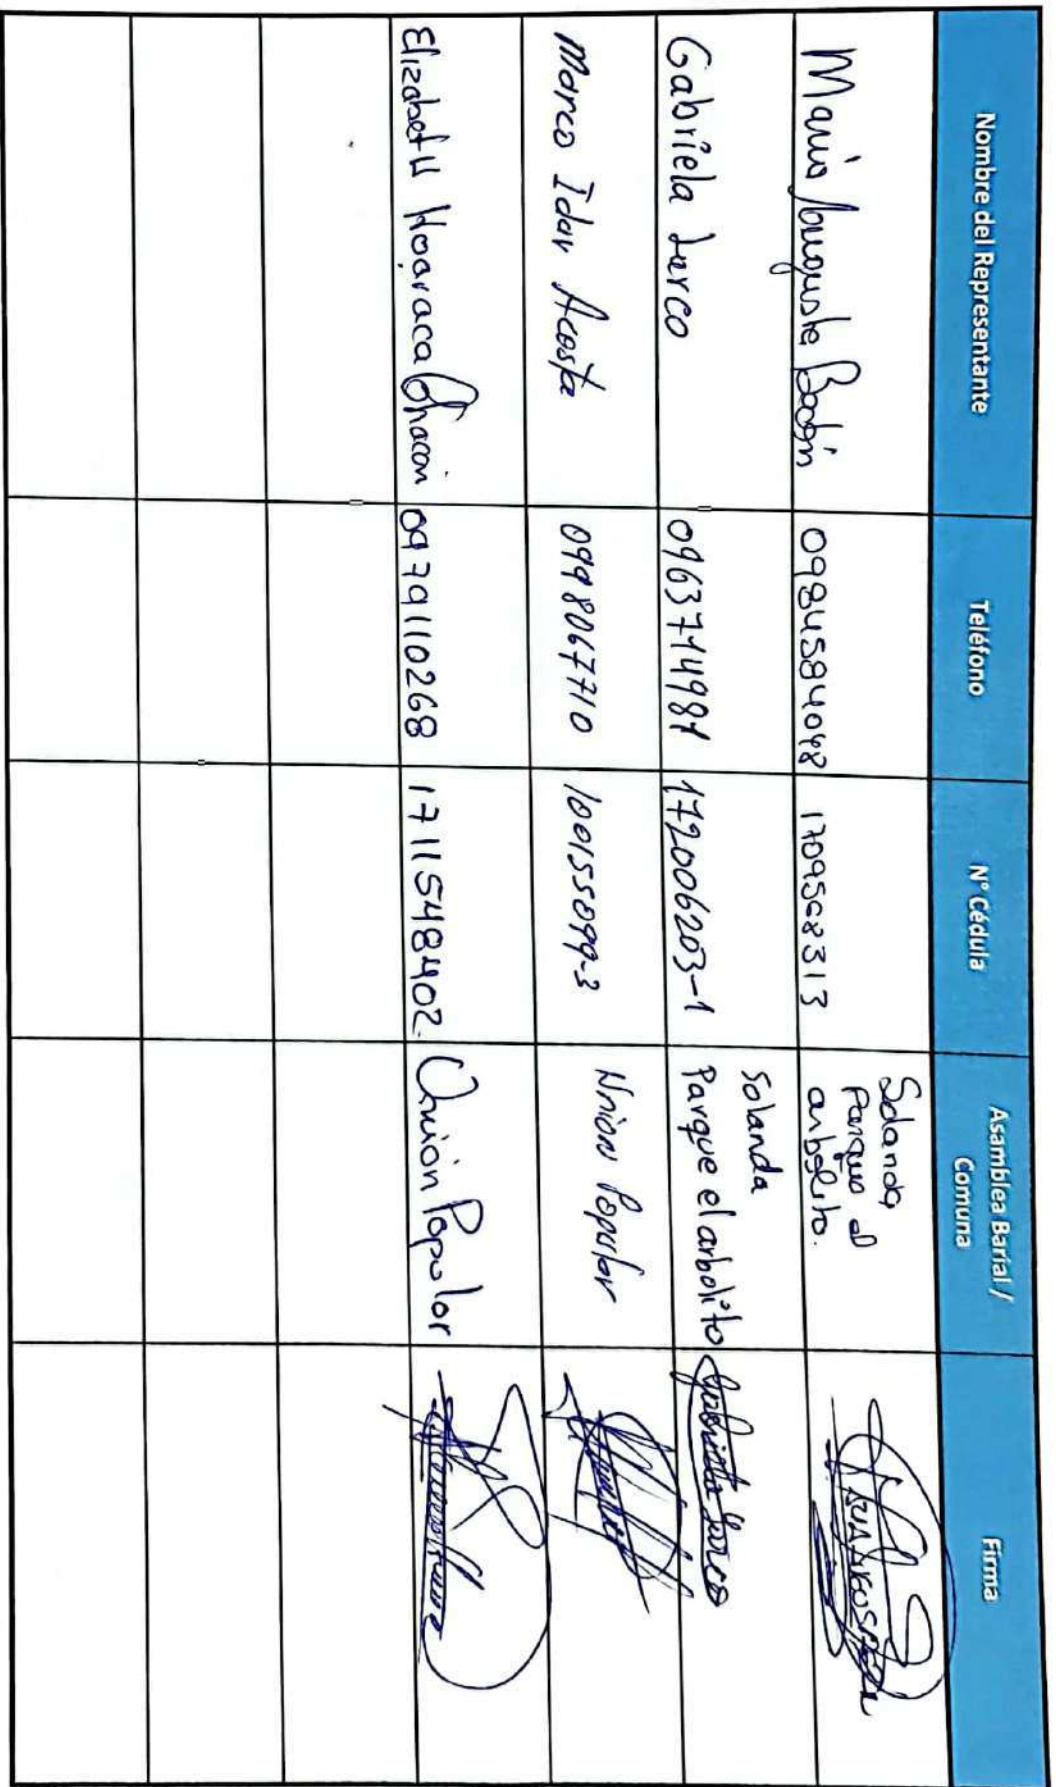 Nombre del Representante Teléfono N° Cédula Asamblea Barial / Comuna Firma
Maria Augusta 0984584048 1709568313 Solanda Parque el arbolito.
Gabriela Lurco 0963714981 172006203-1 Solanda Parque el arbolito Gabriela Lurco
Marco Idar Acosta 0998067710 100155099-3 Unión Popular
Elizabeth Huaraca Chacon 0979110268 1711548402. Unión Popular